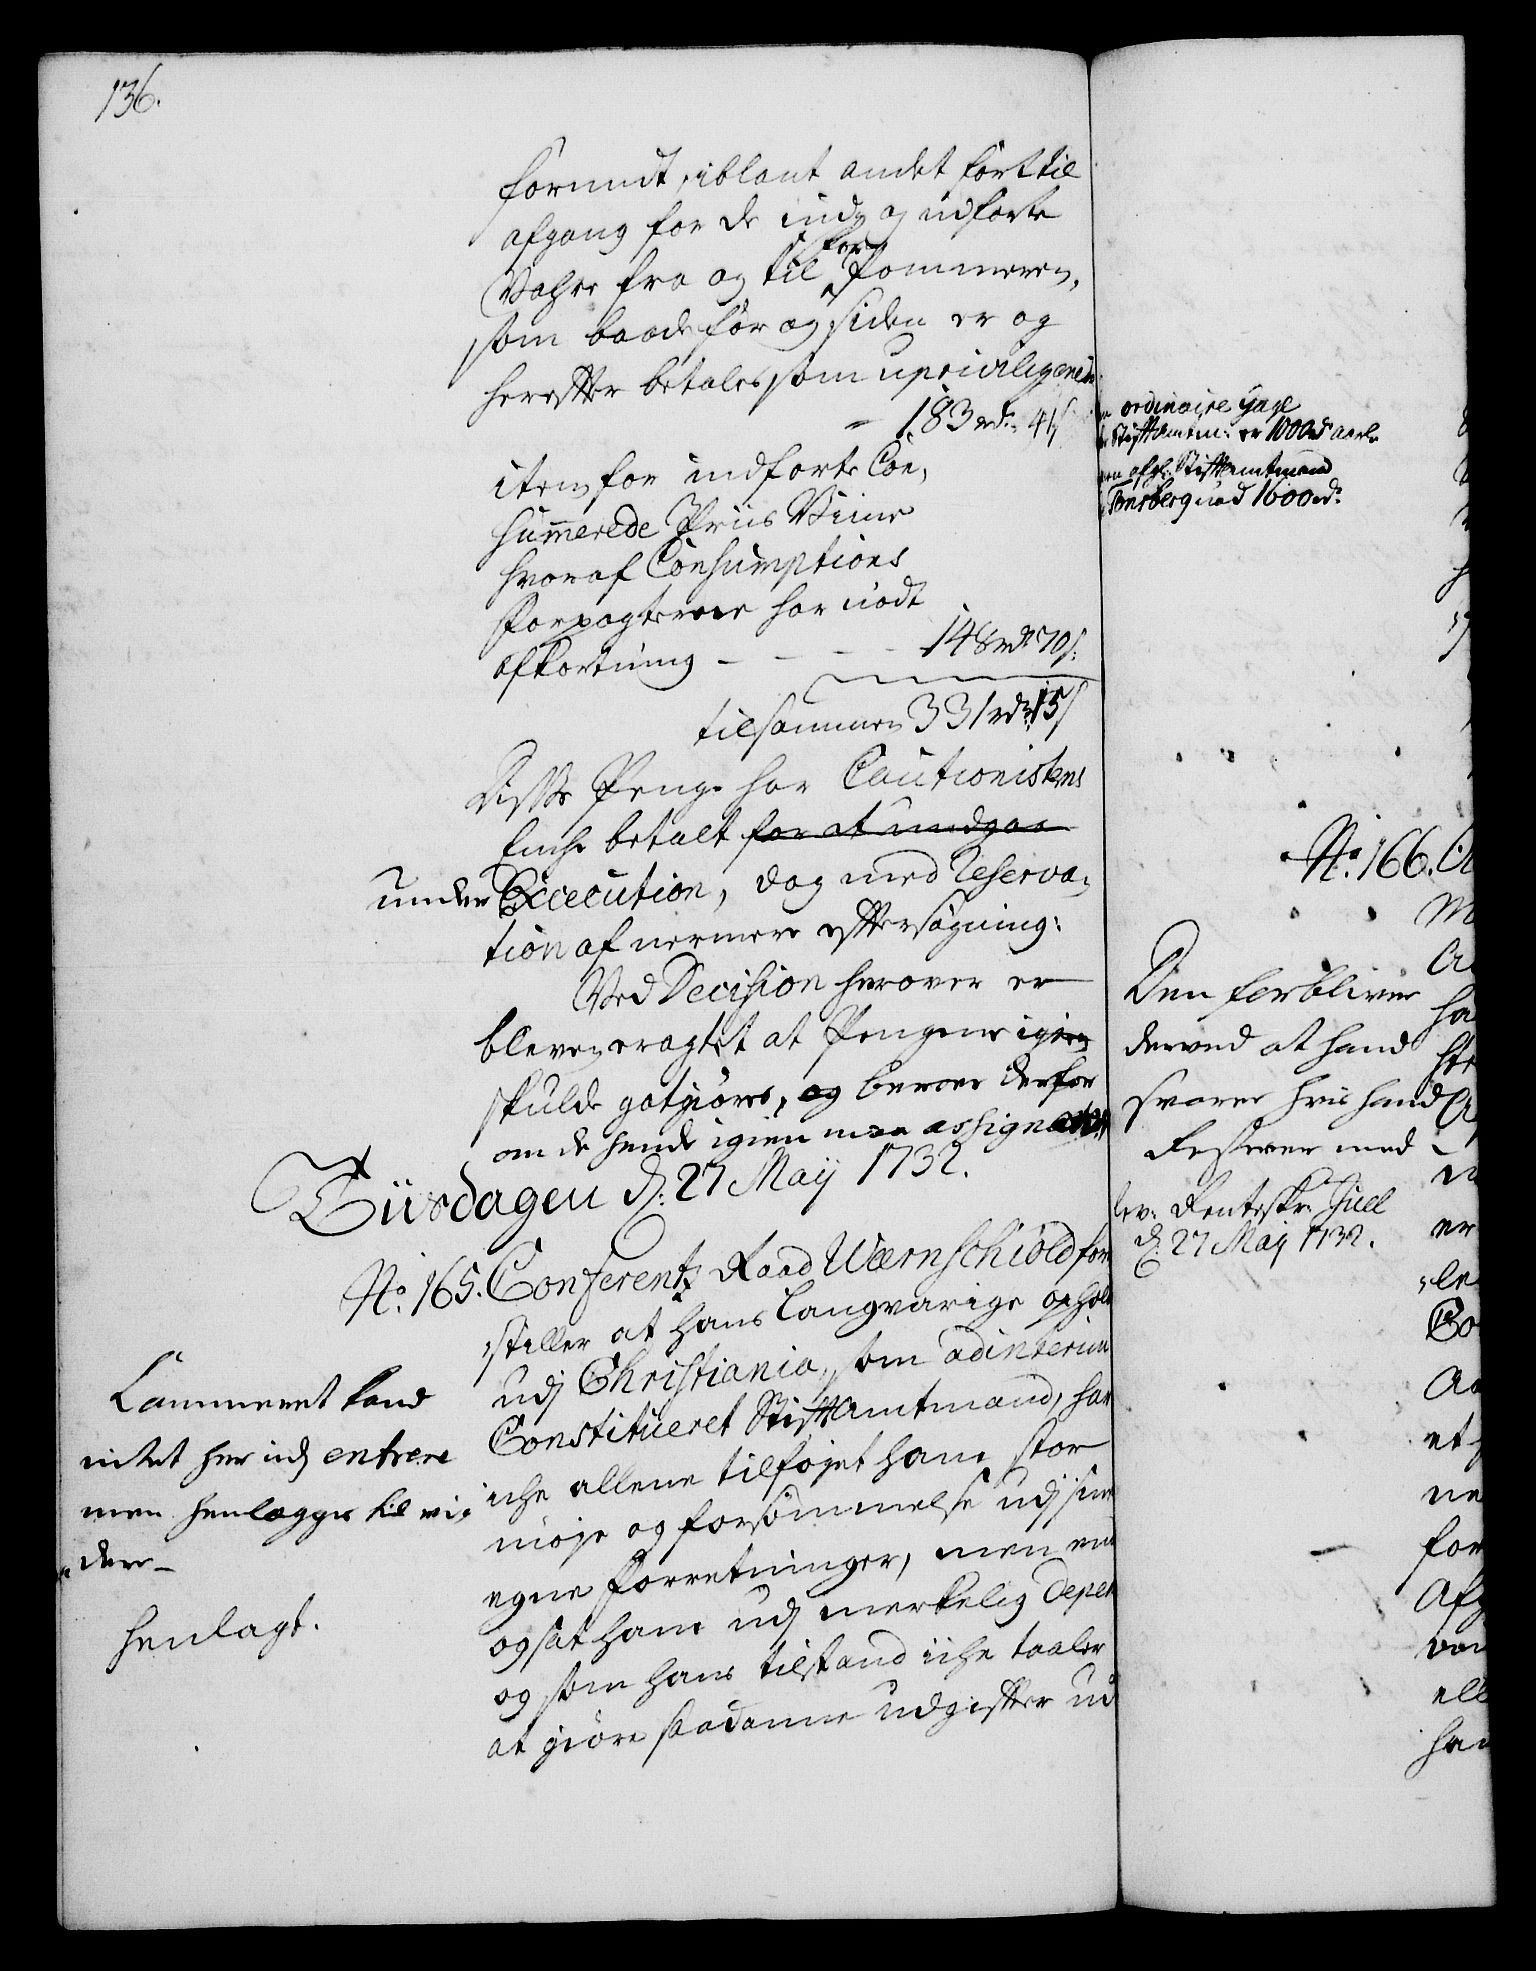 136.
formeldt, iblant andet fört til
afgang for de ind= og udförte
Vahre fra og til for Pommeren,
som baade för og siden er og
herefter betales som upriviligerede
= 183 rd: 41 s
item for indförte Con=
summerede Priis Viine
hvoraf Consumptions
Forpagterne har nödt
afkortning - - - - 148 rd 70 s:
tilsammen 331 rd: 15 s
Disse Penge har Cautionistens
Enche betalt for at undgaa
under Execution, dog med Reserva=
tion af nermere eftersögning:
Ved Decision herover er
bleven eragtet at Pengene igien
skulde gotgiöres, og beroer derfor
om de hende igien maa assigneres
Tiirsdagen d: 27 Maij 1732.
No. 165. Conferentz Raad Wærnschiöld fore
stiller at hans langvarige ophold
udj Christiania, som ad interim
Constitueret Stiftamtmand, har
iche allene tilföjet ham stor
möje og forsömmelse udj sine
egne Forretninger, men end
og sat ham udj merkelig Depen
og som hans tilstand iche taaler
at giöre saadanne udgifter ud
Cammeret kand
intet her udj entrere
men henlegges til vi=
dere
henlagt.
ordinaire Gage
Stiftamtm: er 1000 rd aarl.
afg: Stiftamtmand
Tonsberg nöd 1600 rd:
No. 166.
Den forbliver
derved at hand
svarer hvis hand
Resterer med
lev: Renteskr: Juel
d: 27 Maij 1732.